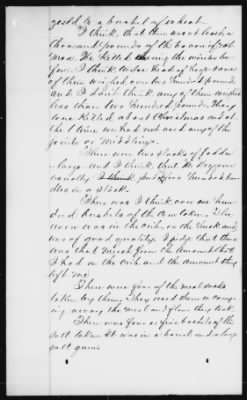 I think that there was at least a
thousand pounds of the bacon
We killed during the winter be-
fore I think twelve head of hogs some
of them weighed over two hundred pounds
and I don't think any of them weighed
less than two hundred pounds. They
were killed about Christmas and at
the time we had not used any of the
joints or middlings.
There were two stacks of fodder
large and I think that
usually put four hundred bun-
dles in a stack.
There was I think over one hun-
dred bushels of the corn taken. The
corn was in the crib, in the husk and
was of good quality. I judge that there
was that much from the amount that
I had in the crib and the amount they
left me
There were four of the meal sacks
taken by them. They used them in carry-
ing away the meal and flour they took.
There was four or five bushels of the
salt taken. It was in a barrel and a large
salt gum.